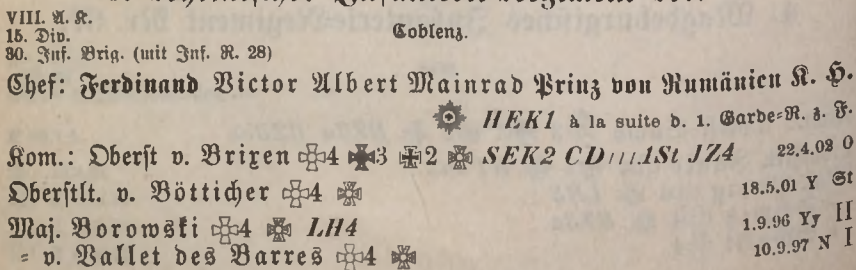 VIII. A. K.
15. Div. Coblenz.
30. Inf. Brig. (mit Inf. R. 28)
Chef: Ferdinand Victor Albert Mainrad Prinz von Rumänien K. H.
HEK1 à la suite d. 1. Garde=R. z. F.
Kom.: Oberst v. Brixen 4 3 2 SEK2 CD///.1St JZ4 22.4.02 O
Oberstlt. v. Bötticher 4 18.5.01 Y St
Maj. Borowski 4 LH4 1.9.96 Yy II
= v. Vallet des Barres 4 10.9.97 N I